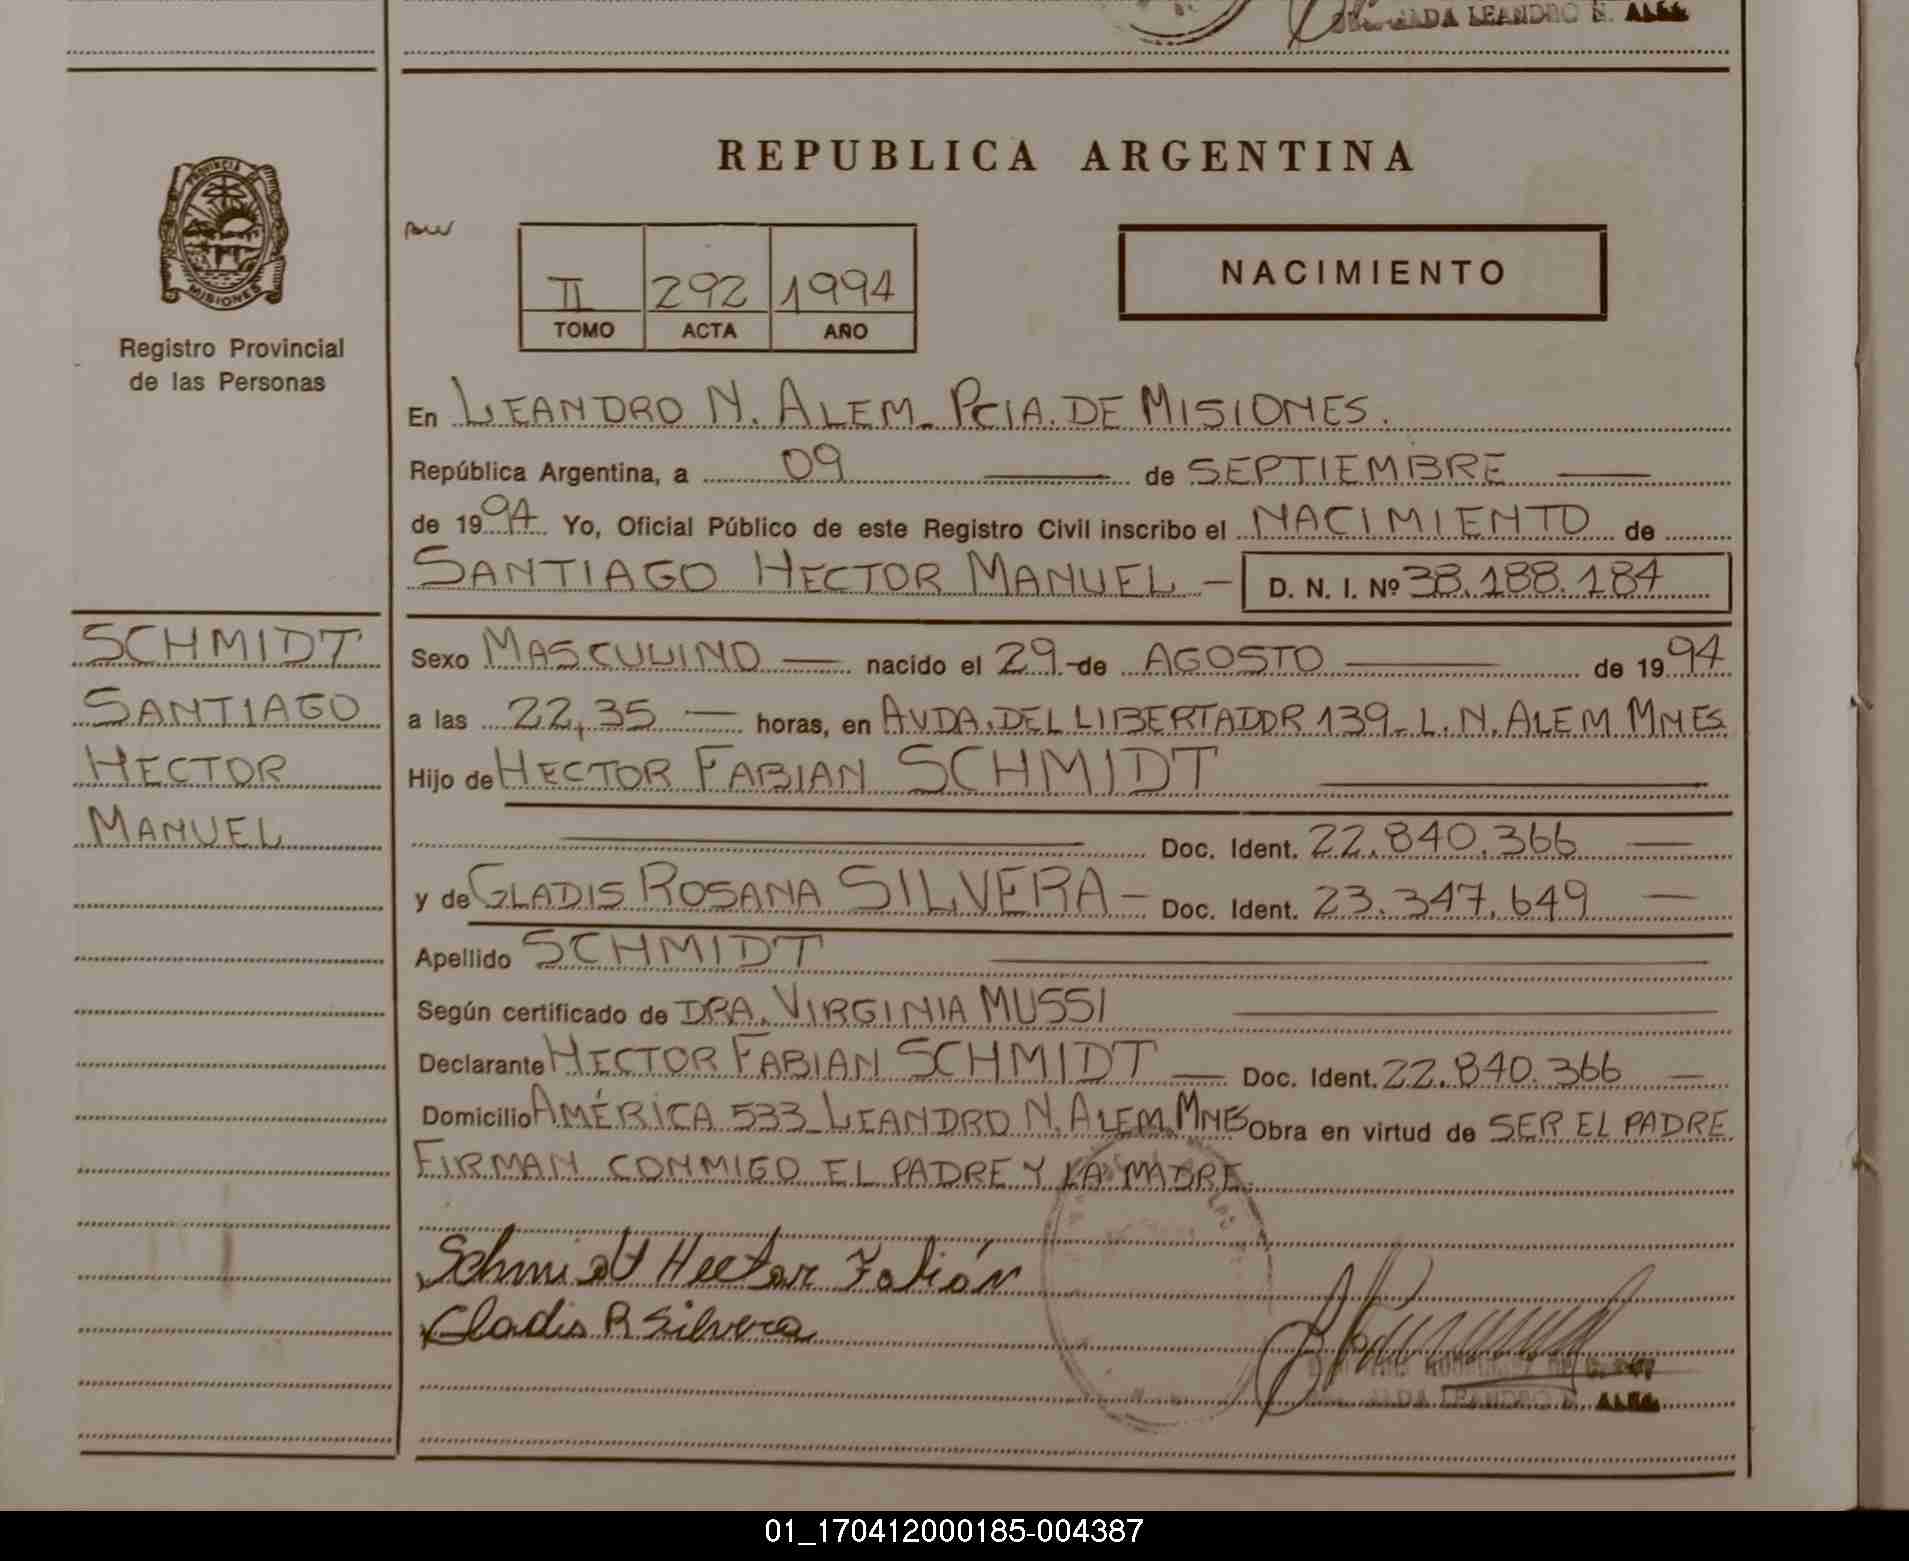 LEANDRO N. ALEM
REPUBLICA ARGENTINA
PROVINCIA DE
MISIONES
Registro Provincial
de las Personas
II 292 1994
TOMO ACTA AÑO
NACIMIENTO
En LEANDRO N. ALEM_ PCIA. DE MISIONES.
República Argentina, a 09 — de SEPTIEMBRE —
de 1994 Yo, Oficial Público de este Registro Civil inscribo el NACIMIENTO de
SANTIAGO HECTOR MANUEL — D. N. I. Nº 38.188.184
SCHMIDT
SANTIAGO
HECTOR
MANUEL
Sexo MASCULINO — nacido el 29 de AGOSTO — de 1994
a las 22,35 — horas, en AVDA. DEL LIBERTADOR 139_ L.N. ALEM MNES
Hijo de HECTOR FABIAN SCHMIDT —
— Doc. Ident. 22.840.366 —
y de GLADIS ROSANA SILVERA — Doc. Ident. 23.347.649 —
Apellido SCHMIDT —
Según certificado de DRA. VIRGINIA MUSSI —
Declarante HECTOR FABIAN SCHMIDT — Doc. Ident. 22.840.366 —
Domicilio AMÉRICA 533_ LEANDRO N. ALEM MNES Obra en virtud de SER EL PADRE
FIRMAN CONMIGO EL PADRE Y LA MADRE.
Schmidt Hector Fabián
Gladis R Silvera
LEANDRO N. ALEM
01_170412000185-004387